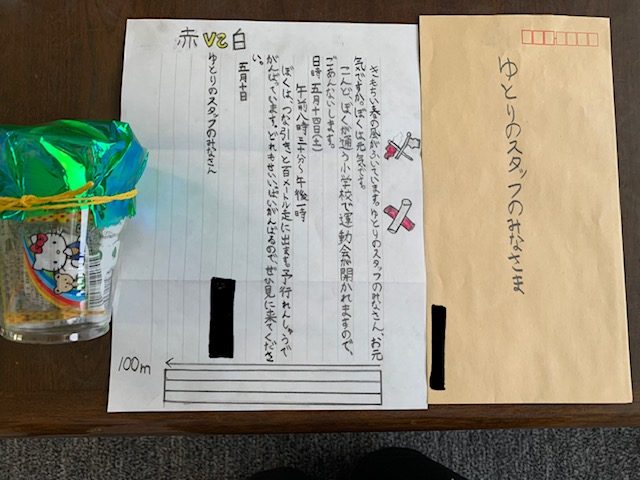 赤VS白
きもちいい春の風がふいています。ゆとりのスタッフのみなさん、お元
気ですか。ぼくは元気です。
こんど、ぼくが通う小学校で運動会が開かれますので、
ごあんないします。
日時 五月十四日(土)
午前八時三十分~午後一時
ぼくは、つな引きと百メートル走に出ます。予行れんしゅうで
がんばっています。どれもせいいっぱいがんばるので、ぜひ見に来てくださ
い。
五月十日
ゆとりのスタッフのみなさん
100m
ゆとりのスタッフのみなさま